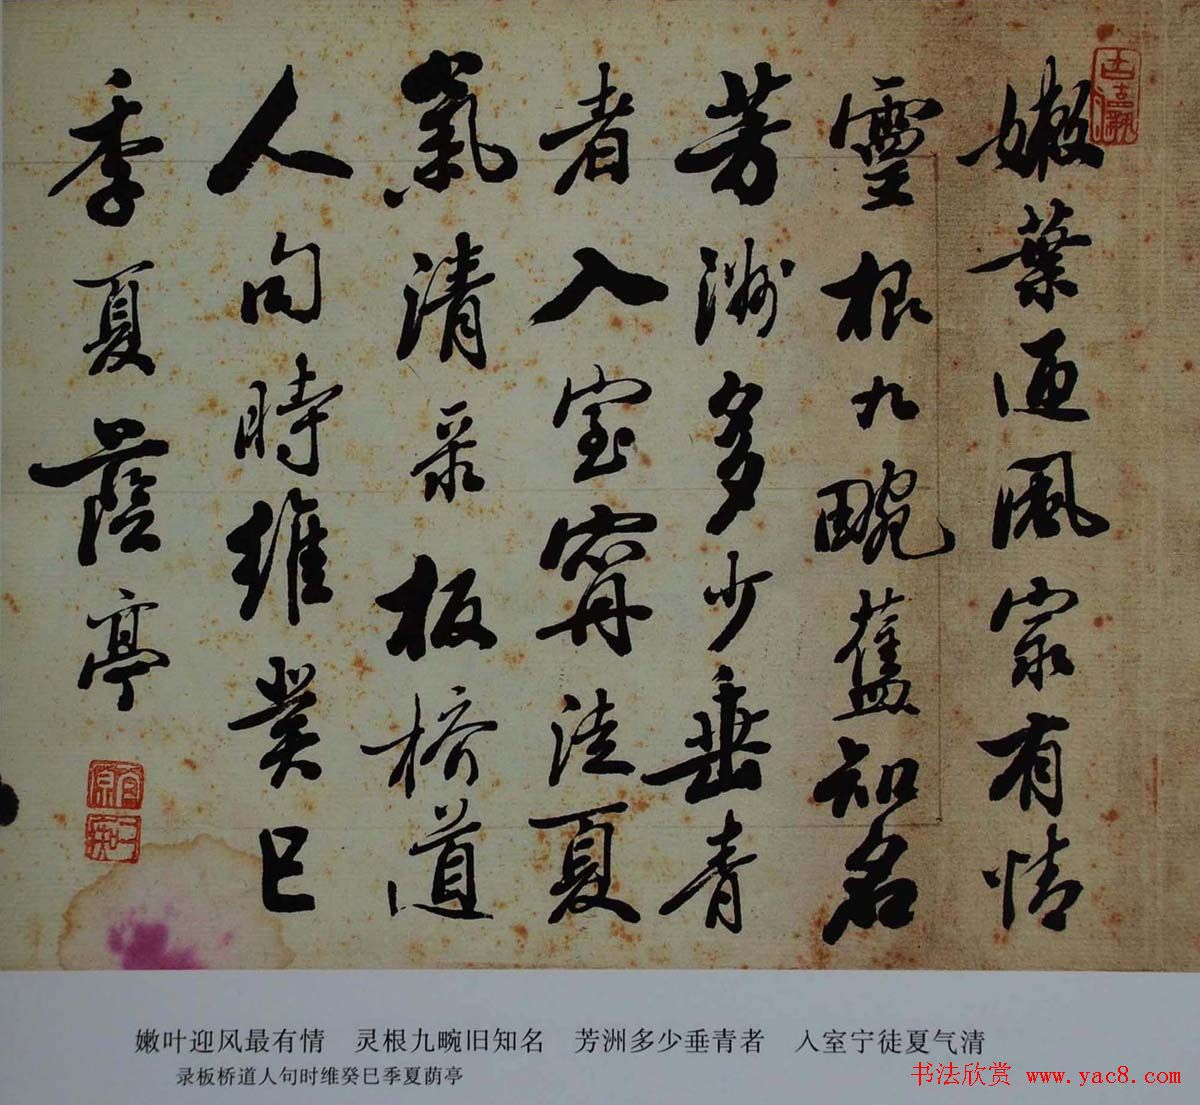 嫩葉迎風最有情
靈根九畹舊知名
芳洲多少垂青
者入室寗徒夏
氣清录板橋道
人句時維癸巳
季夏蔭亭
嫩叶迎风最有情 灵根九畹旧知名 芳洲多少垂青者 入室宁徒夏气清
录板桥道人句时维癸巳季夏荫亭
书法欣赏 www.yac8.com